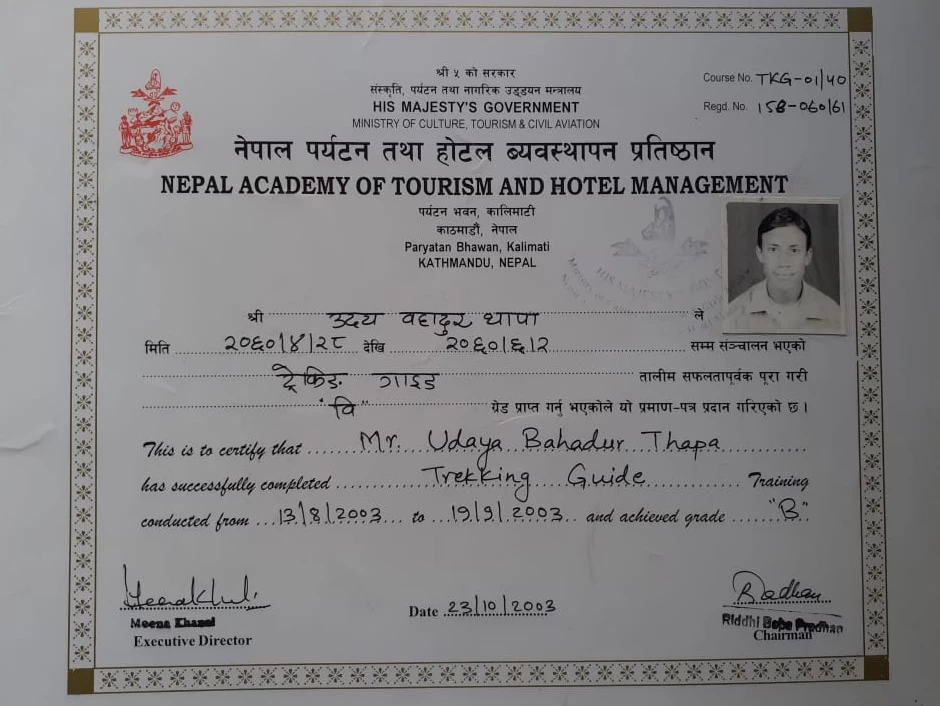 श्री ५ को सरकार
संस्कृति, पर्यटन तथा नागरिक उड्डयन मन्त्रालय
HIS MAJESTY'S GOVERNMENT
MINISTRY OF CULTURE, TOURISM & CIVIL AVIATION
Course No. TKG-01/40
Regd. No. 158-060/61
नेपाल पर्यटन तथा होटल ब्यवस्थापन प्रतिष्ठान
NEPAL ACADEMY OF TOURISM AND HOTEL MANAGEMENT
पर्यटन भवन, कालिमाटी
काठमाडौं, नेपाल
Paryatan Bhawan, Kalimati
KATHMANDU, NEPAL
HIS MAJESTY
श्री उदय वहादुर थापा ले
मिति २०६०/४/२८ देखि २०६०/६/२ सम्म संञ्चालन भएको
ट्रेकिङ गाइड तालीम सफलतापूर्वक पूरा गरी
"वि" ग्रेड प्राप्त गर्नु भएकोले यो प्रमाण-पत्र प्रदान गरिएको छ।
This is to certify that Mr. Udaya Bahadur Thapa
has successfully completed Trekking Guide Training
conducted from 13/8/2003 to 19/9/2003 and achieved grade "B"
Meena Khanal
Executive Director
Date 23/10/2003
Riddhi Baba Pradhan
Chairman